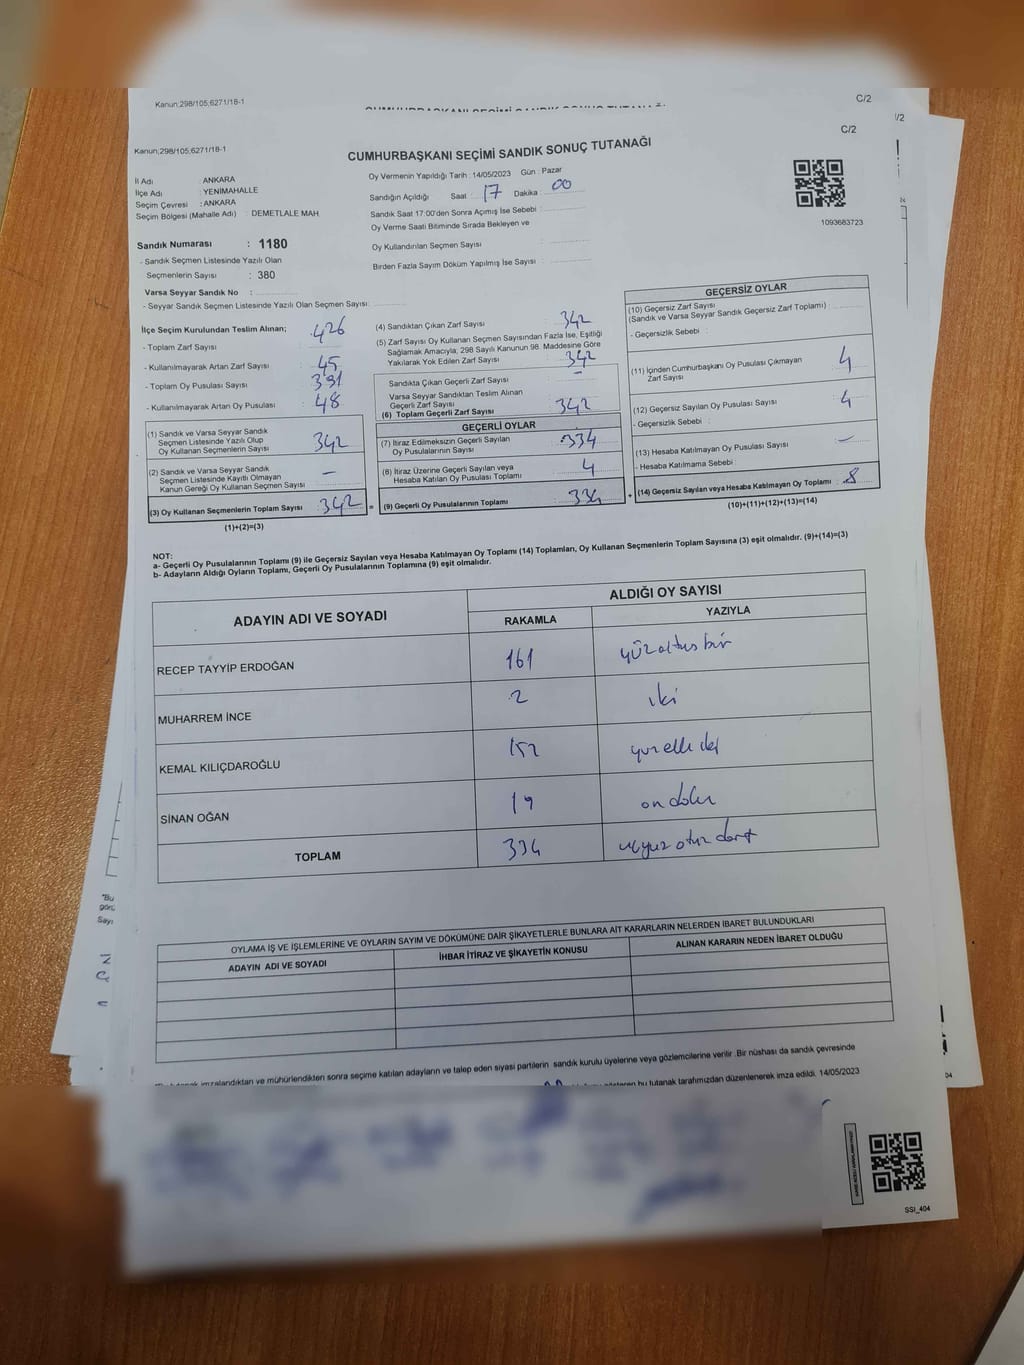 Kanun;298/105;6271/18-1
C/2
/2
Kanun;298/105;6271/18-1
C/2
CUMHURBAŞKANI SEÇİMİ SANDIK SONUÇ TUTANAĞI
İl Adı : ANKARA
İlçe Adı : YENİMAHALLE
Seçim Çevresi : ANKARA
Seçim Bölgesi (Mahalle Adı) : DEMETLALE MAH.
Oy Vermenin Yapıldığı Tarih : 14/05/2023 Gün : Pazar
Sandığın Açıldığı Saat : 17 Dakika : 00
Sandık Saat 17:00'den Sonra Açımış İse Sebebi :
Oy Verme Saati Bitiminde Sırada Bekleyen ve
Oy Kullandırılan Seçmen Sayısı :
Birden Fazla Sayım Döküm Yapılmış İse Sayısı :
1093683723
Sandık Numarası : 1180
- Sandık Seçmen Listesinde Yazılı Olan
Seçmenlerin Sayısı : 380
Varsa Seyyar Sandık No :
- Seyyar Sandık Seçmen Listesinde Yazılı Olan Seçmen Sayısı:
İlçe Seçim Kurulundan Teslim Alınan;
- Toplam Zarf Sayısı : 426
- Kullanılmayarak Artan Zarf Sayısı : 45
- Toplam Oy Pusulası Sayısı : 391
- Kullanılmayarak Artan Oy Pusulası : 48
(1) Sandık ve Varsa Seyyar Sandık
Seçmen Listesinde Yazılı Olup
Oy Kullanan Seçmenlerin Sayısı : 342
(2) Sandık ve Varsa Seyyar Sandık
Seçmen Listesinde Kayıtlı Olmayan
Kanun Gereği Oy Kullanan Seçmen Sayısı : —
(3) Oy Kullanan Seçmenlerin Toplam Sayısı : 342 =
(1)+(2)=(3)
(4) Sandıktan Çıkan Zarf Sayısı : 342
(5) Zarf Sayısı Oy Kullanan Seçmen Sayısından Fazla İse, Eşitliği
Sağlamak Amacıyla, 298 Sayılı Kanunun 98. Maddesine Göre
Yakılarak Yok Edilen Zarf Sayısı : 342
Sandıkta Çıkan Geçerli Zarf Sayısı : —
Varsa Seyyar Sandıktan Teslim Alınan
Geçerli Zarf Sayısı
(6) Toplam Geçerli Zarf Sayısı : 342
GEÇERLİ OYLAR
(7) İtiraz Edilmeksizin Geçerli Sayılan
Oy Pusulalarının Sayısı : 334
(8) İtiraz Üzerine Geçerli Sayılan veya
Hesaba Katılan Oy Pusulası Toplamı : 4
(9) Geçerli Oy Pusulalarının Toplamı : 334 +
GEÇERSİZ OYLAR
(10) Geçersiz Zarf Sayısı :
(Sandık ve Varsa Seyyar Sandık Geçersiz Zarf Toplamı)
- Geçersizlik Sebebi :
(11) İçinden Cumhurbaşkanı Oy Pusulası Çıkmayan
Zarf Sayısı : 4
(12) Geçersiz Sayılan Oy Pusulası Sayısı : 4
- Geçersizlik Sebebi :
(13) Hesaba Katılmayan Oy Pusulası Sayısı : —
- Hesaba Katılmama Sebebi :
(14) Geçersiz Sayılan veya Hesaba Katılmayan Oy Toplamı : 8
(10)+(11)+(12)+(13)=(14)
NOT:
a- Geçerli Oy Pusulalarının Toplamı (9) ile Geçersiz Sayılan veya Hesaba Katılmayan Oy Toplamı (14) Toplamları, Oy Kullanan Seçmenlerin Toplam Sayısına (3) eşit olmalıdır. (9)+(14)=(3)
b- Adayların Aldığı Oyların Toplamı, Geçerli Oy Pusulalarının Toplamına (9) eşit olmalıdır.
ADAYIN ADI VE SOYADI
ALDIĞI OY SAYISI
RAKAMLA YAZIYLA
RECEP TAYYİP ERDOĞAN 161 yüzaltmış bir
MUHARREM İNCE 2 iki
KEMAL KILIÇDAROĞLU 152 yüz elli iki
SİNAN OĞAN 19 on dokuz
TOPLAM 334 üçyüz otuz dört
OYLAMA İŞ VE İŞLEMLERİNE VE OYLARIN SAYIM VE DÖKÜMÜNE DAİR ŞİKAYETLERLE BUNLARA AİT KARARLARIN NELERDEN İBARET BULUNDUKLARI
ADAYIN ADI VE SOYADI İHBAR İTİRAZ VE ŞİKAYETİN KONUSU ALINAN KARARIN NEDEN İBARET OLDUĞU
imzalandıktan ve mühürlendikten sonra seçime katılan adayların ve talep eden siyasi partilerin sandık kurulu üyelerine veya gözlemcilerine verilir. Bir nüshası da sandık çevresinde
bu tutanak tarafımızdan düzenlenerek imza edildi. 14/05/2023
SSI_404